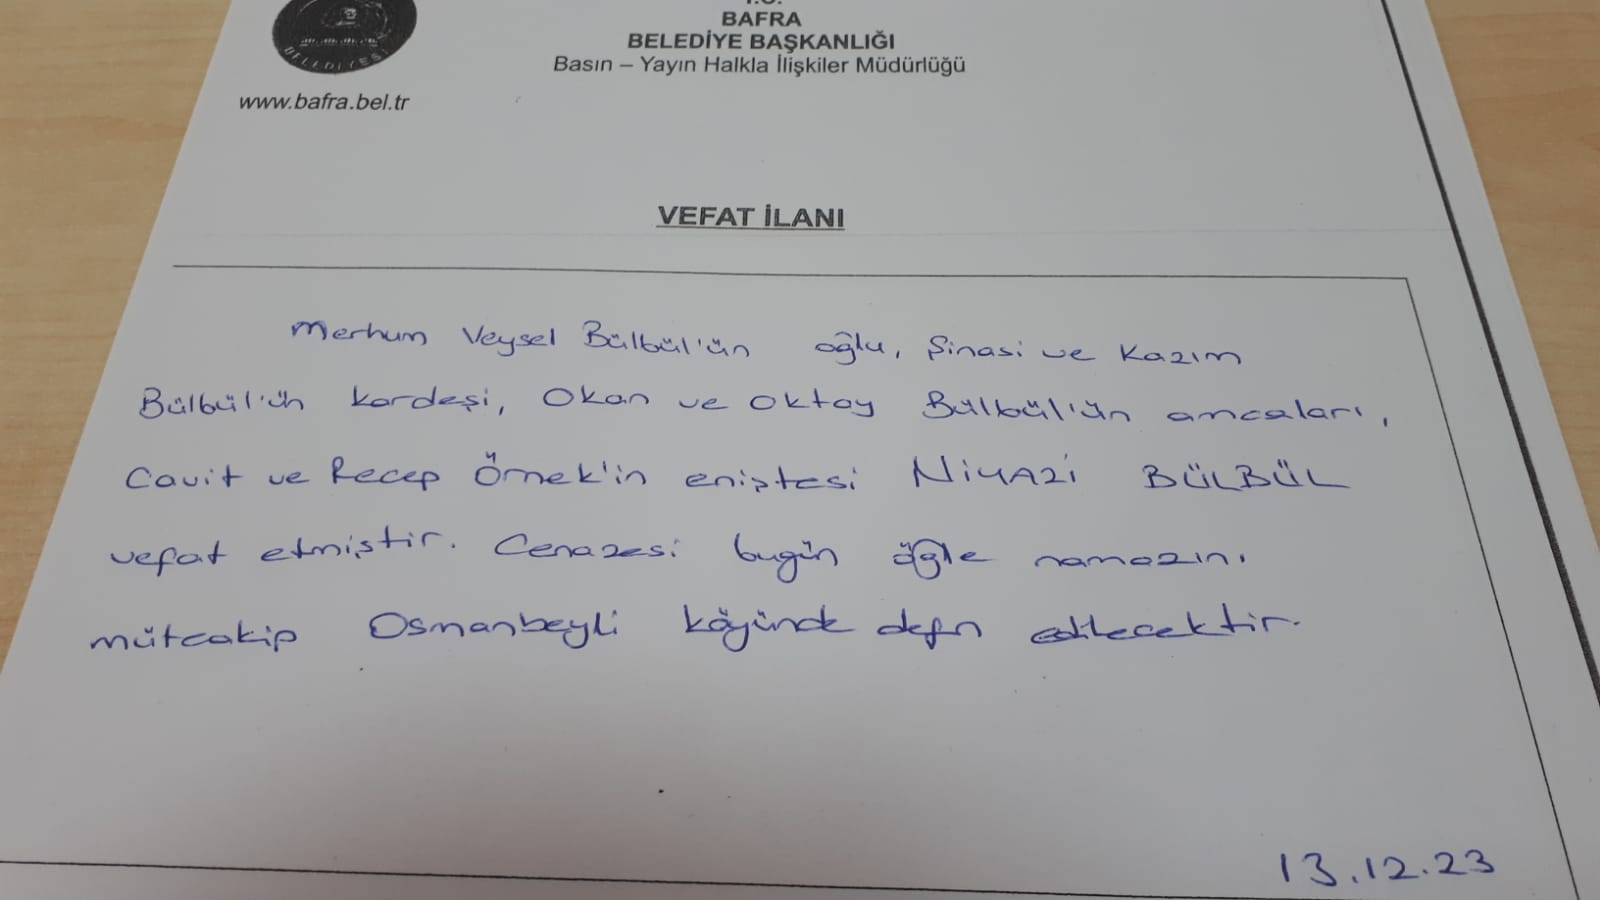 T.C.
BAFRA
BELEDİYE BAŞKANLIĞI
Basın – Yayın Halkla İlişkiler Müdürlüğü
BELEDİYESİ
www.bafra.bel.tr
VEFAT İLANI
Merhum Veysel Bülbül'ün oğlu, Şinasi ve Kazım
Bülbül'ün kardeşi, Okan ve Oktay Bülbül'ün amcaları,
Cavit ve Recep Örnek'in eniştesi NİYAZİ BÜLBÜL
vefat etmiştir. Cenazesi bugün öğle namazını
müteakip Osmanbeyli köyünde defn edilecektir.
13.12.23